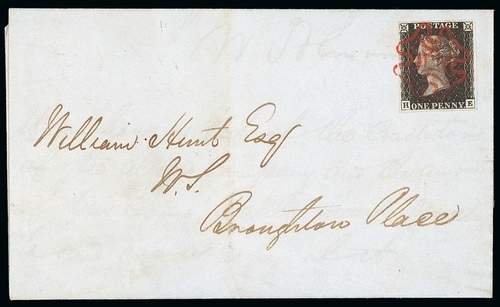 POSTAGE
H E
ONE PENNY
William Hunt Esq
W.S.
Broughton Place